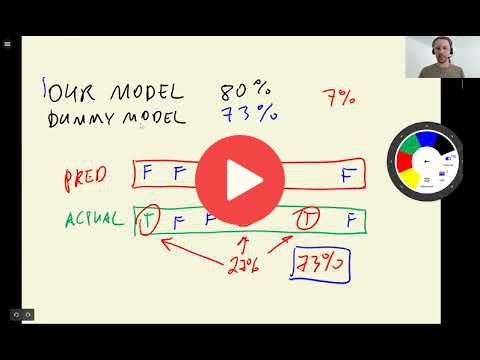 OUR MODEL 80% 7%
DUMMY MODEL 73%
PRED F F F
ACTUAL T F F T F
27% 73%